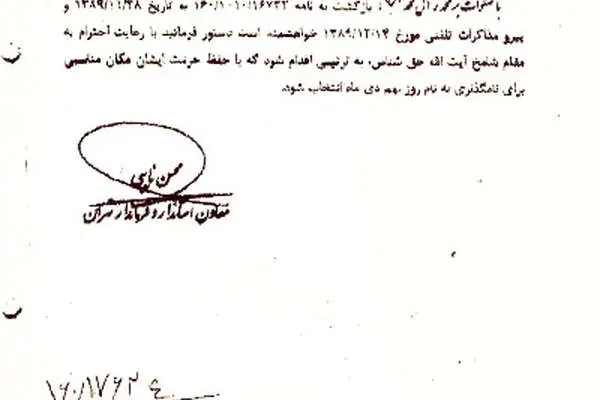 با صلوات بر محمد و آل محمد ، بازگشت به نامه ۱۶۰/۱۰۱۰/۱۶۷۳۲ به تاریخ ۱۳۸۹/۱۱/۲۸ و
پیرو مذاکرات تلفنی مورخ ۱۳۸۹/۱۲/۱۴ خواهشمند است دستور فرمائید با رعایت احترام به
مقام شامخ آیت الله حق شناس، به ترتیبی اقدام شود که با حفظ حرمت ایشان مکان مناسبی
برای نامگذاری به نام روز نهم دی ماه انتخاب شود.
محسن نایبی
معاون استاندار و فرماندار تهران
۱۶۰/۱۷۶۲۴